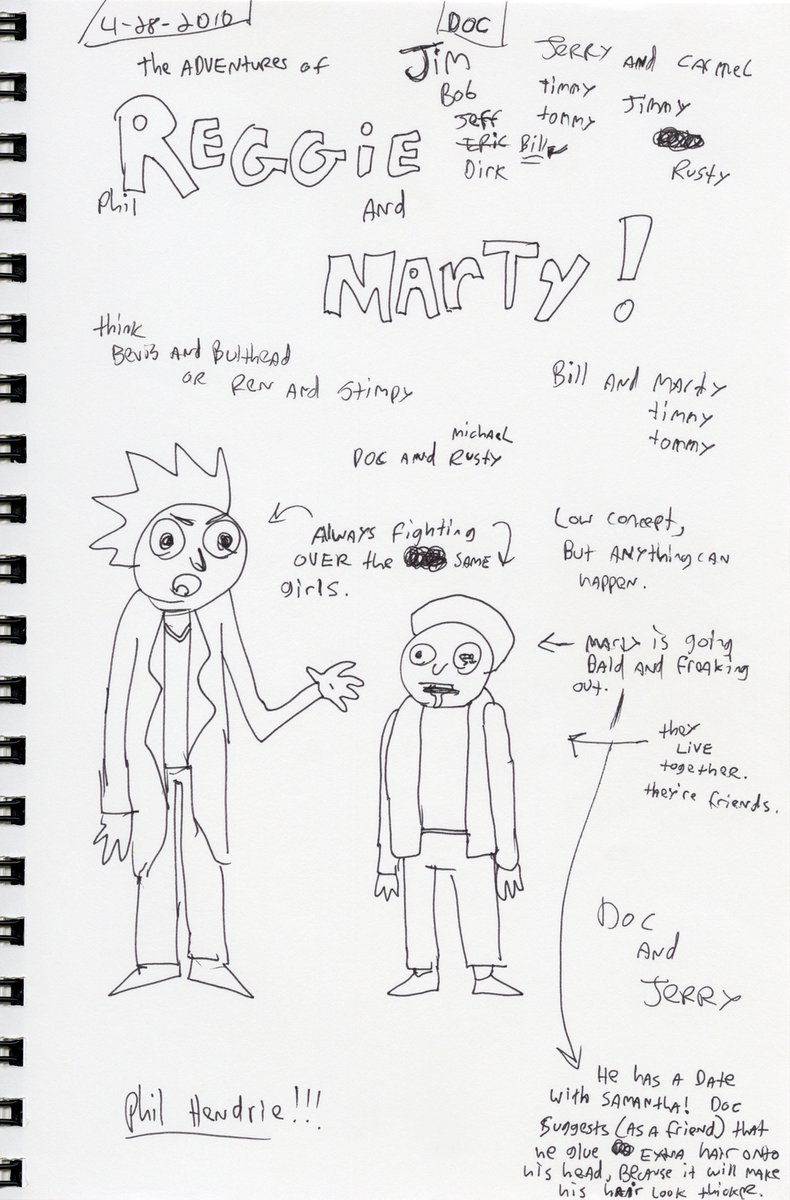 4-28-2010
DOC
the ADVENTURES of
Jim
Bob
Jeff
Eric Bill
Dirk
JERRY AND CARMEL
timmy
tommy
Jimmy
Rusty
REGGiE
Phil
AND
MArTy!
think
Bevis AND Butthead
OR REN And Stimpy
Bill AND Marty
timmy
tommy
michael
DOC AND Rusty
Always fighting
OVER the SAME
girls.
Low concept,
But ANything CAN
happen.
Marty is going
BALD AND freaking
out.
they
LIVE
together.
they're friends.
DOC
AND
JERRY
Phil Hendrie!!!
He has A DATE
with SAMANTHA! DOC
Suggests (AS A friend) that
he glue EXTRA hair onto
his head, BECAUSE it will make
his hair look thicker.